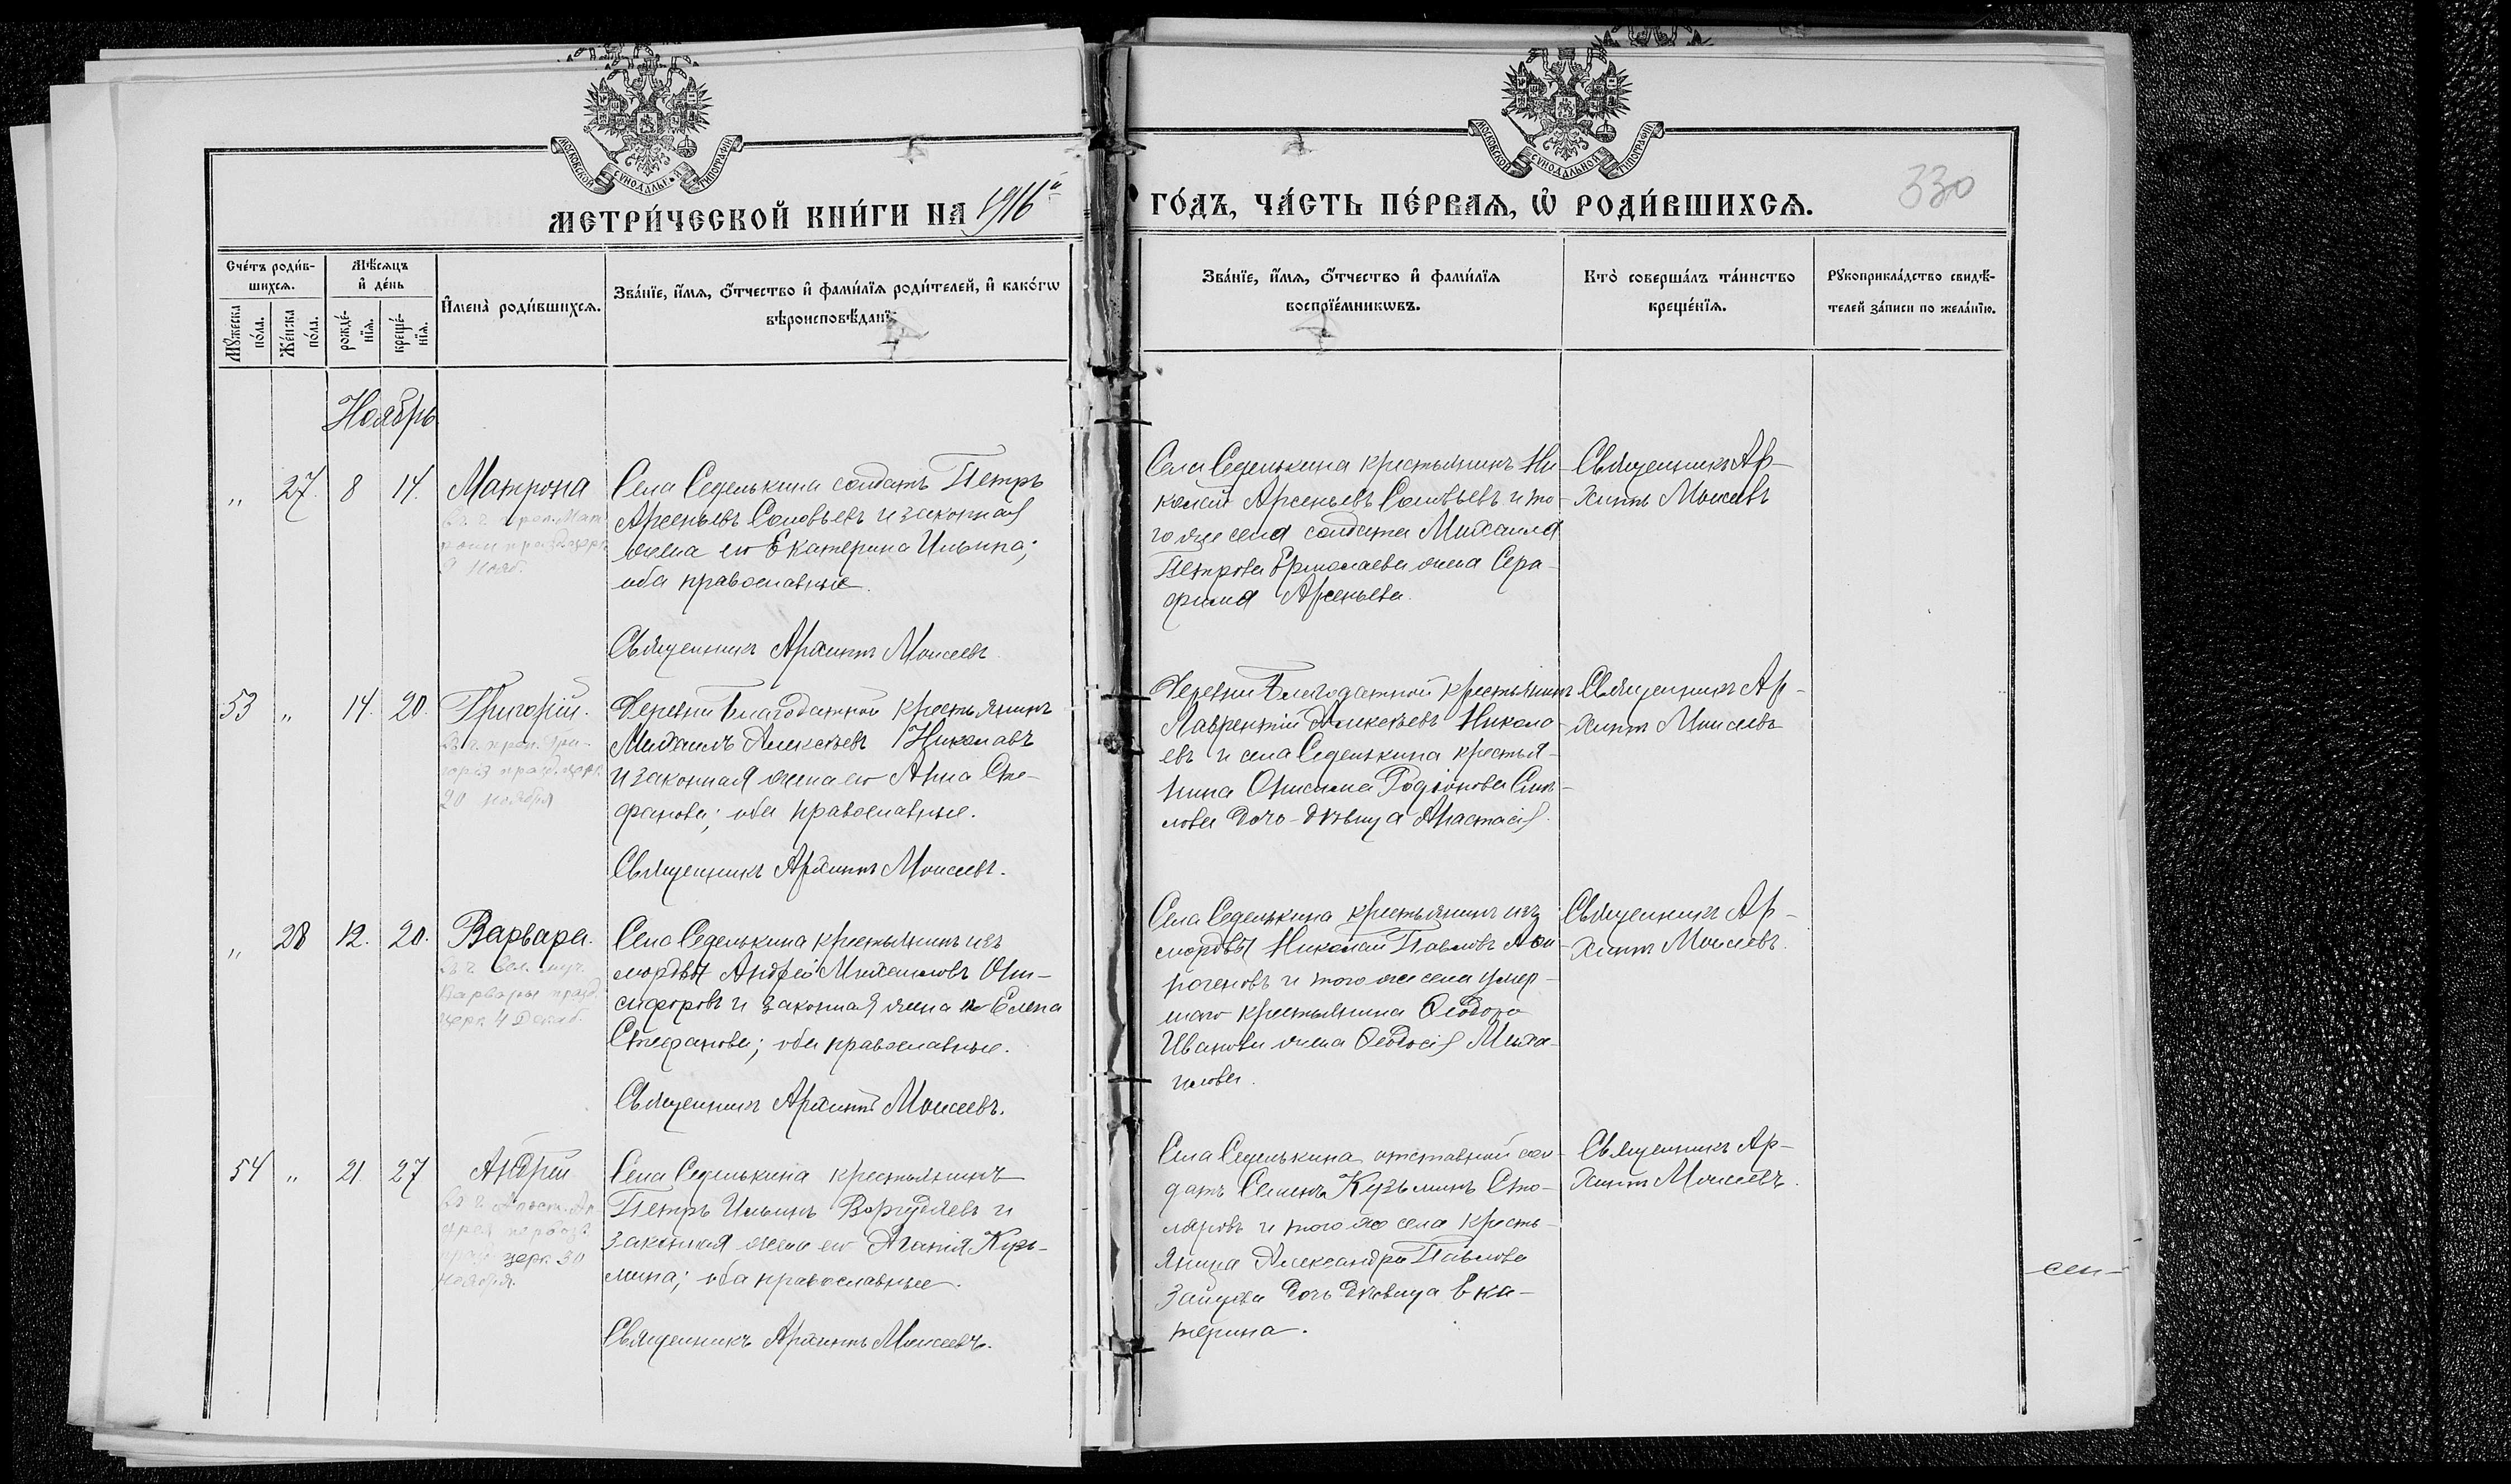 МОСКОВСКОЙ СѴНОДАЛЬНОЙ ТИПОГРАФІИ
МОСКОВСКОЙ СѴНОДАЛЬНОЙ ТИПОГРАФІИ
330
МЕТРИ́ЧЕСКОЙ КНИ́ГИ НА 1916й ГО́ДЪ, ЧА́СТЬ ПЕ́РВАѦ, Ѡ҆ РОДИ́ВШИХСѦ.
Сче́тъ роди́в-
шихсѧ.
Мѣ́сѧцъ
и҆ де́нь
Мꙋ́жеска
по́ла.
Же́нска
по́ла.
рожде́-
нїѧ.
креще́-
нїѧ.
И҆мена̀ роди́вшихсѧ.
Зва́нїе, и҆́мѧ, ѻ҆́тчество и҆ фами́лїѧ роди́телей, и҆ како́гѡ
вѣроисповѣ́данїѧ
Зва́нїе, и҆́мѧ, ѻ҆́тчество и҆ фами́лїѧ
воспрїе́мникѡвъ.
Кто̀ соверша́лъ та́инство
креще́нїѧ.
Рꙋкоприкла́дство свидѣ́-
телей за́писи по жела́нїю.
Ноябрь
„ 27. 8 14. Матрона
9 Нояб.
Села Седелькина солдатъ Петръ
Арсеньевъ Соловьевъ и законная
жена его Екатерина Ильина;
оба православные.
Священникъ Архиппъ Моисеевъ.
Села Седелькина крестьянинъ Ни-
колай Арсеньевъ Соловьевъ и то-
го же села солдата Михаила
Петрова Ермолаева жена Сера-
фима Арсеньева.
Священникъ Ар-
хиппъ Моисеевъ
53 „ 14. 20. Григорій.
Въ ч. преп. Гри-
горія празд. церк.
20 ноября
Деревни Благодатной крестьянинъ
Михаилъ Алексѣевъ Николаевъ
и законная жена его Анна Сте-
фанова; оба православные.
Священникъ Архиппъ Моисеевъ.
Деревни Благодатной крестьянинъ
Лаврентій Алексѣевъ Никола-
евъ и села Седелькина крестья-
нина Онисима Родіонова
дочь-дѣвица Анастасія.
Священникъ Ар-
хиппъ Моисеевъ
„ 28 12. 20. Варвара.
Въ ч. Вел. муч.
Варвары празд.
церк. 4 Декаб.
Села Седелькина крестьянинъ изъ
мордвы Андрей Михаиловъ Они-
сифоровъ и законная жена его Елена
Стефанова; оба православные.
Священникъ Архиппъ Моисеевъ.
Села Седелькина крестьянинъ изъ
мордвы Николай Павловъ
и того же села умер-
шаго крестьянина Ѳеодора
Иванова жена Ѳеодосія Миха-
илова.
Священникъ Ар-
хиппъ Моисеевъ.
54 „ 21 27 Андрей
Въ ч. Апост. Ан-
дрея первозв.
празд. церк. 30
ноября.
Села Седелькина крестьянинъ
Петръ Ильинъ и
законная жена его Агапія Кузь-
мина; оба православные.
Священникъ Архиппъ Моисеевъ.
Села Седелькина отставной сол-
датъ Семенъ Кузьминъ Сто-
ляровъ и того же села кресть-
янина Александра Павлова
дочь дѣвица Ека-
терина.
Священникъ Ар-
хиппъ Моисеевъ.